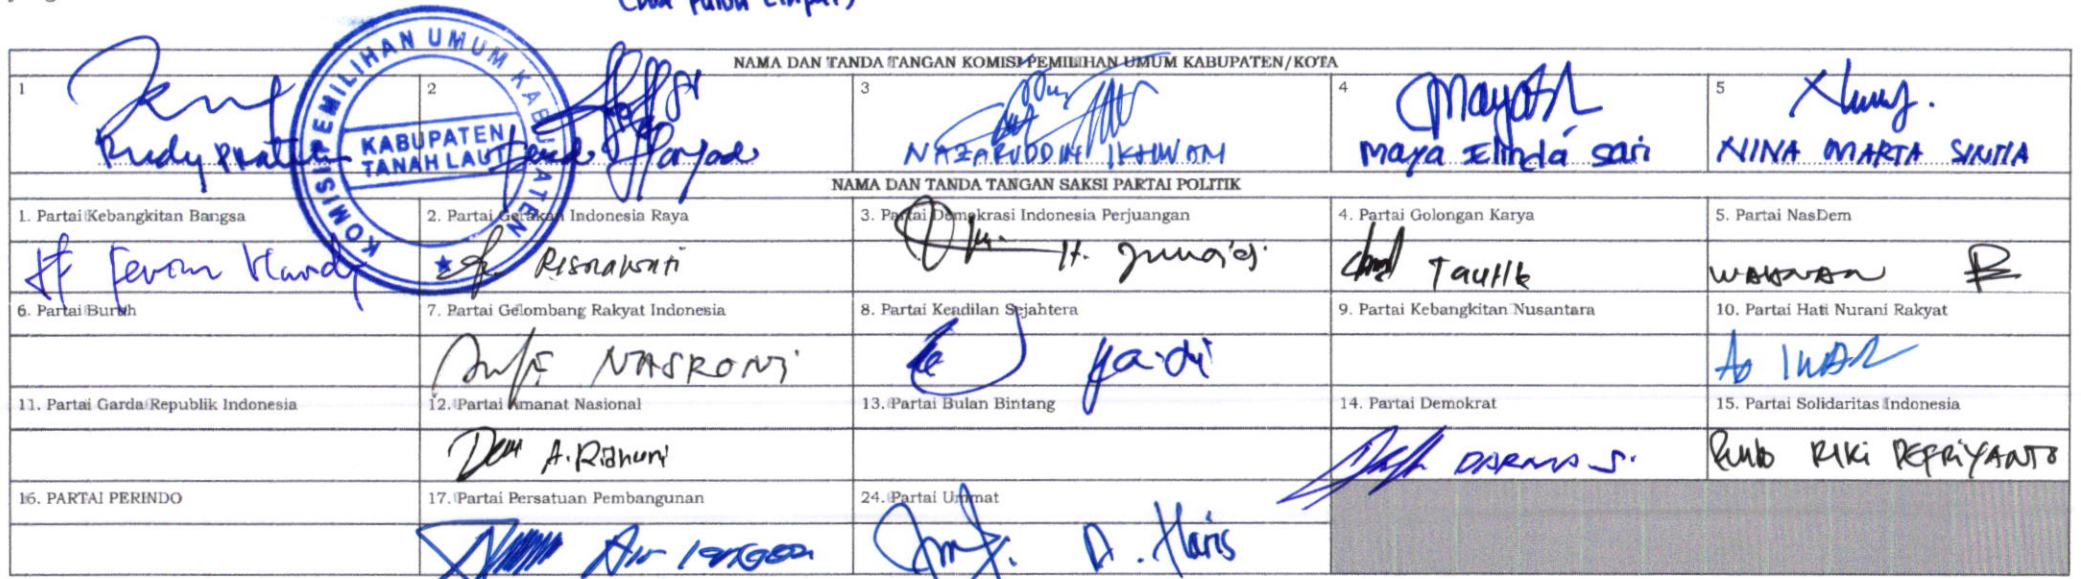 (Dua Puluh Empat)
NAMA DAN TANDA TANGAN KOMISI PEMILIHAN UMUM KABUPATEN/KOTA
1 2 3 4 5
KOMISI PEMILIHAN UMUM KABUPATEN
KABUPATEN
TANAH LAUT
Rudy NAZARUDDIN IKHWAN Maya Elinda Sari NINA MARTA SINTIA
NAMA DAN TANDA TANGAN SAKSI PARTAI POLITIK
1. Partai Kebangkitan Bangsa 2. Partai Gerakan Indonesia Raya 3. Partai Demokrasi Indonesia Perjuangan 4. Partai Golongan Karya 5. Partai NasDem
Risnawati H. Junaidi Taufik
6. Partai Buruh 7. Partai Gelombang Rakyat Indonesia 8. Partai Keadilan Sejahtera 9. Partai Kebangkitan Nusantara 10. Partai Hati Nurani Rakyat
NASRONI Yaidi IWAN
11. Partai Garda Republik Indonesia 12. Partai Amanat Nasional 13. Partai Bulan Bintang 14. Partai Demokrat 15. Partai Solidaritas Indonesia
DARMA S. RIKI DEFRIYANTO
16. PARTAI PERINDO 17. Partai Persatuan Pembangunan 24. Partai Ummat
A. Haris